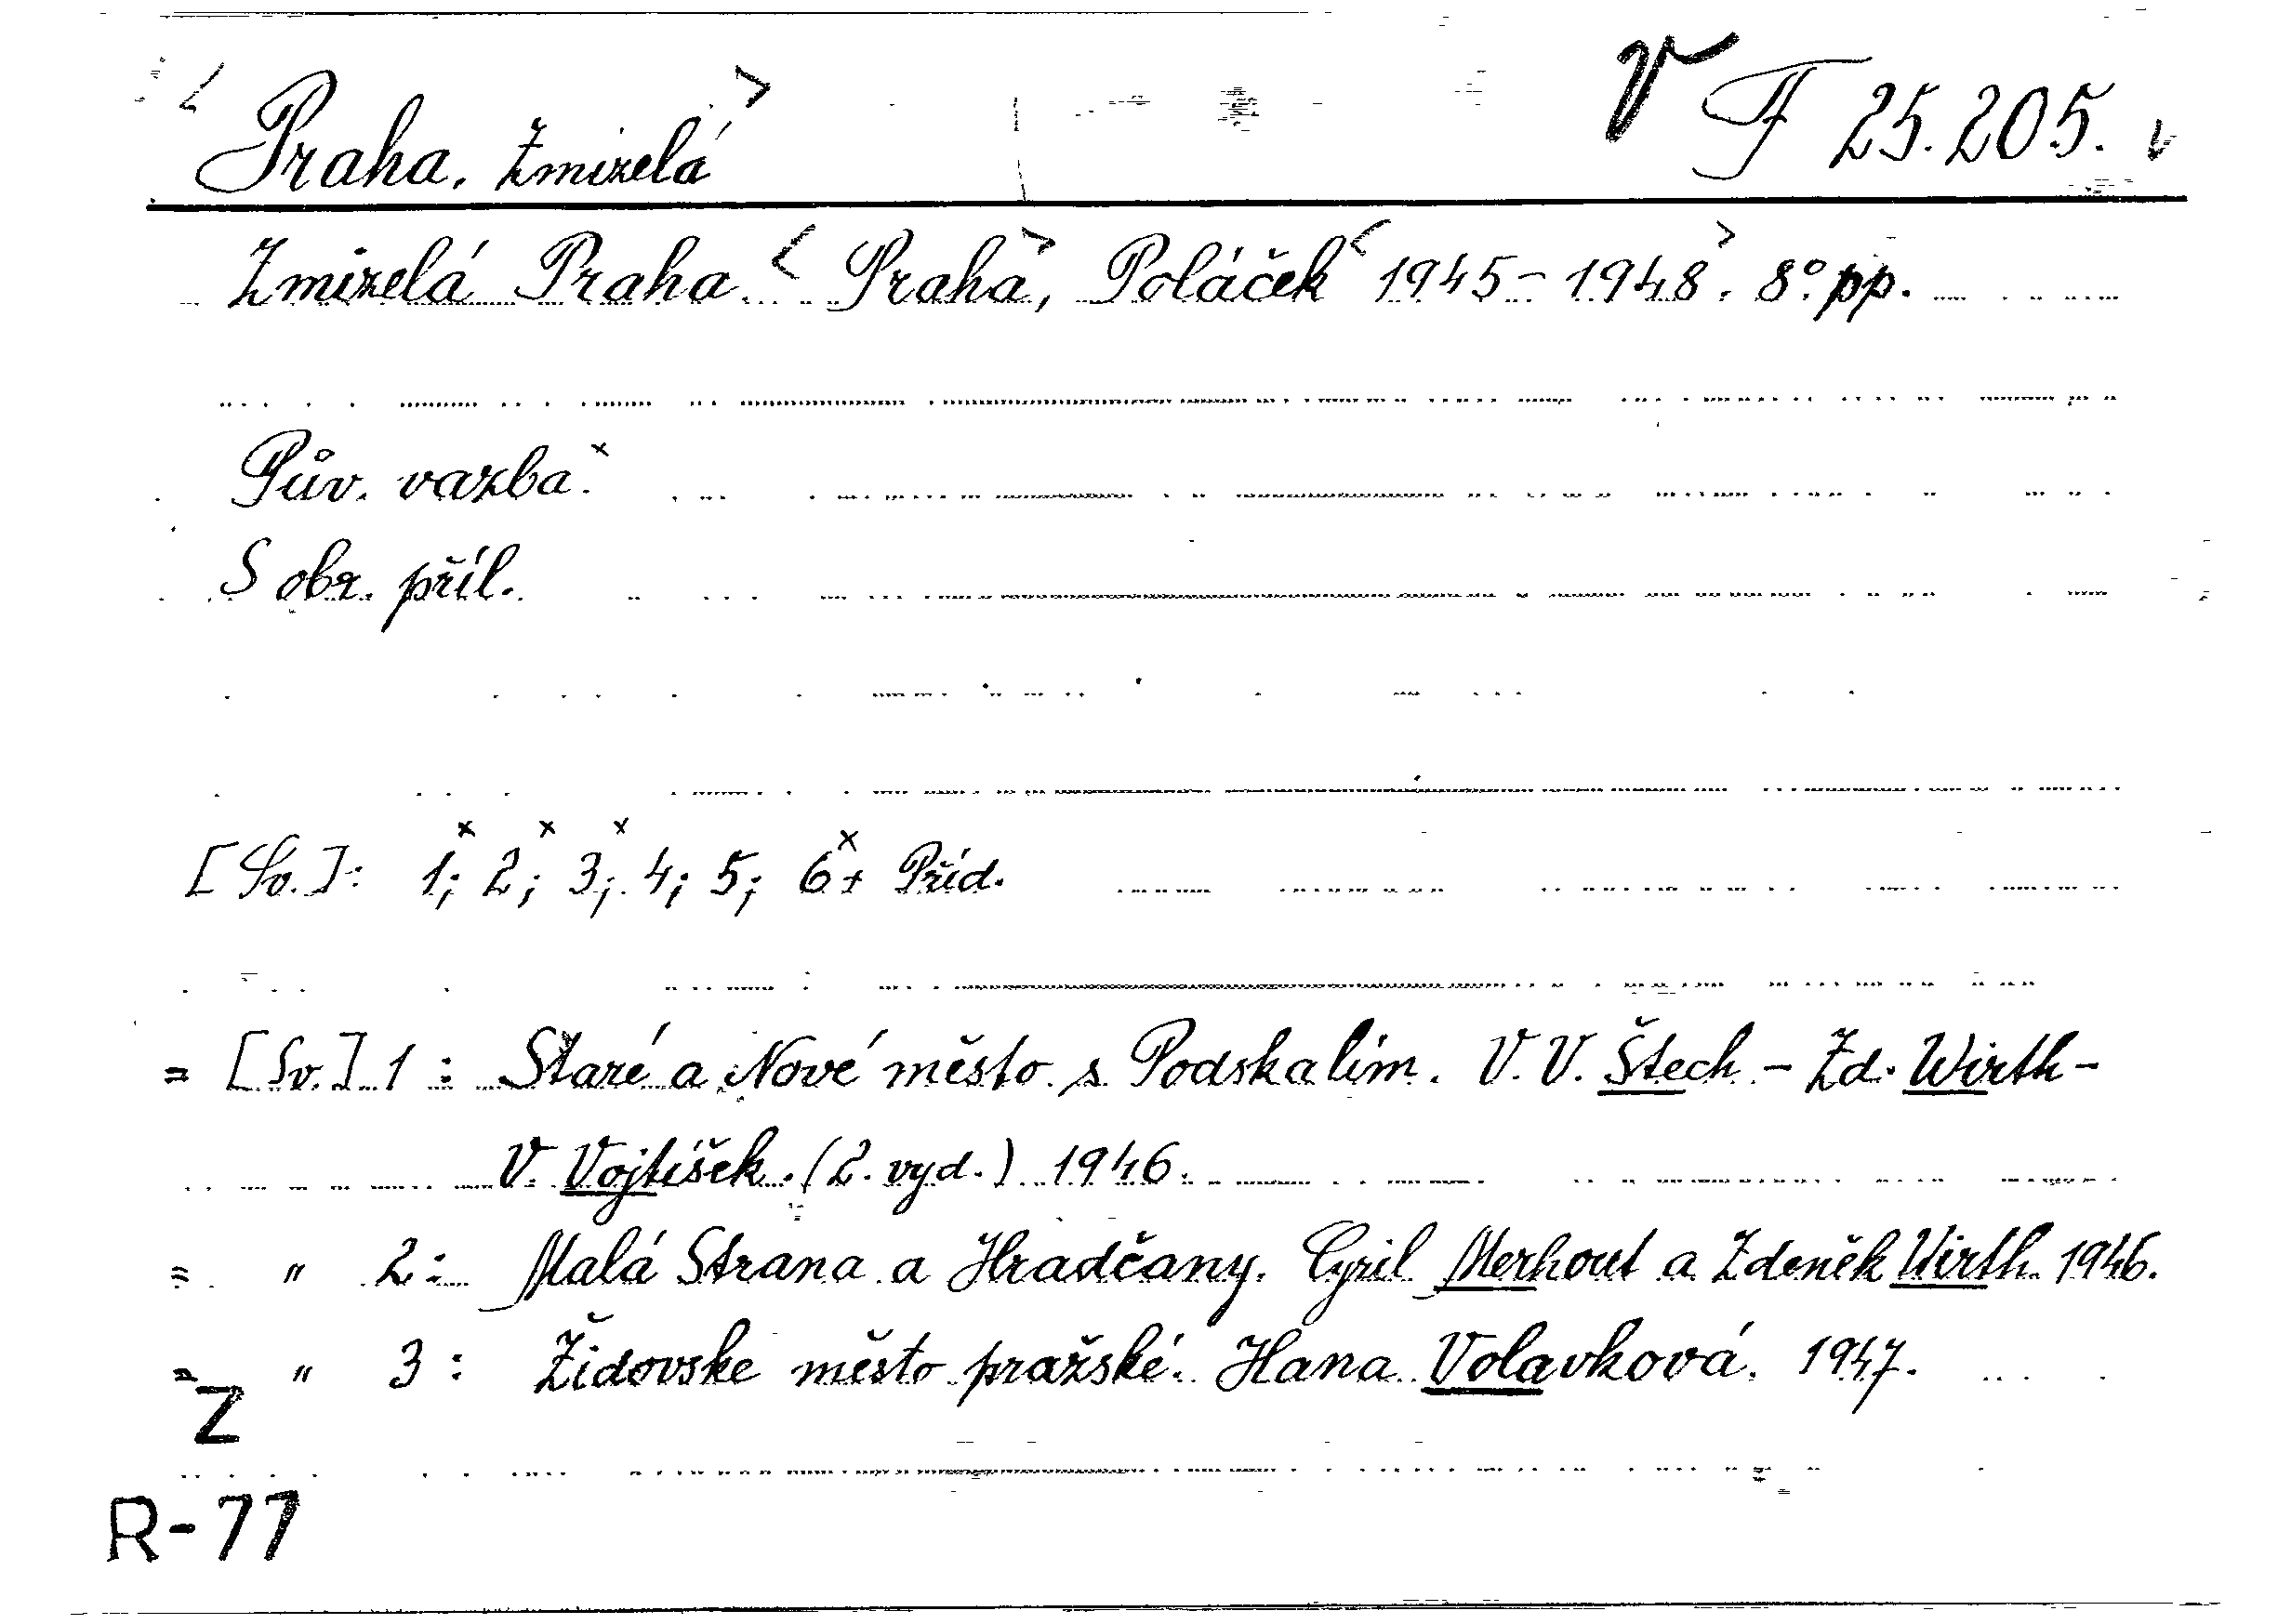 <Praha. Zmizelá> V F 25.205. v
Zmizelá Praha. <Praha>, Poláček <1945-1948>. 8° pp.
Pův. vazba.x
S obr. příl.
[Sv.]: 1x; 2x; 3x; 4; 5; 6x + Příd.
= [Sv.] 1: Staré a Nové město s Podskalím. V. V. Štech - Zd. Wirth -
V. Vojtíšek. (2. vyd.) 1946.
= " 2: Malá Strana a Hradčany. Cyril Merhout a Zdeněk Wirth. 1946.
= " 3: Židovske město pražské. Hana Volavková. 1947.
Z
R-77